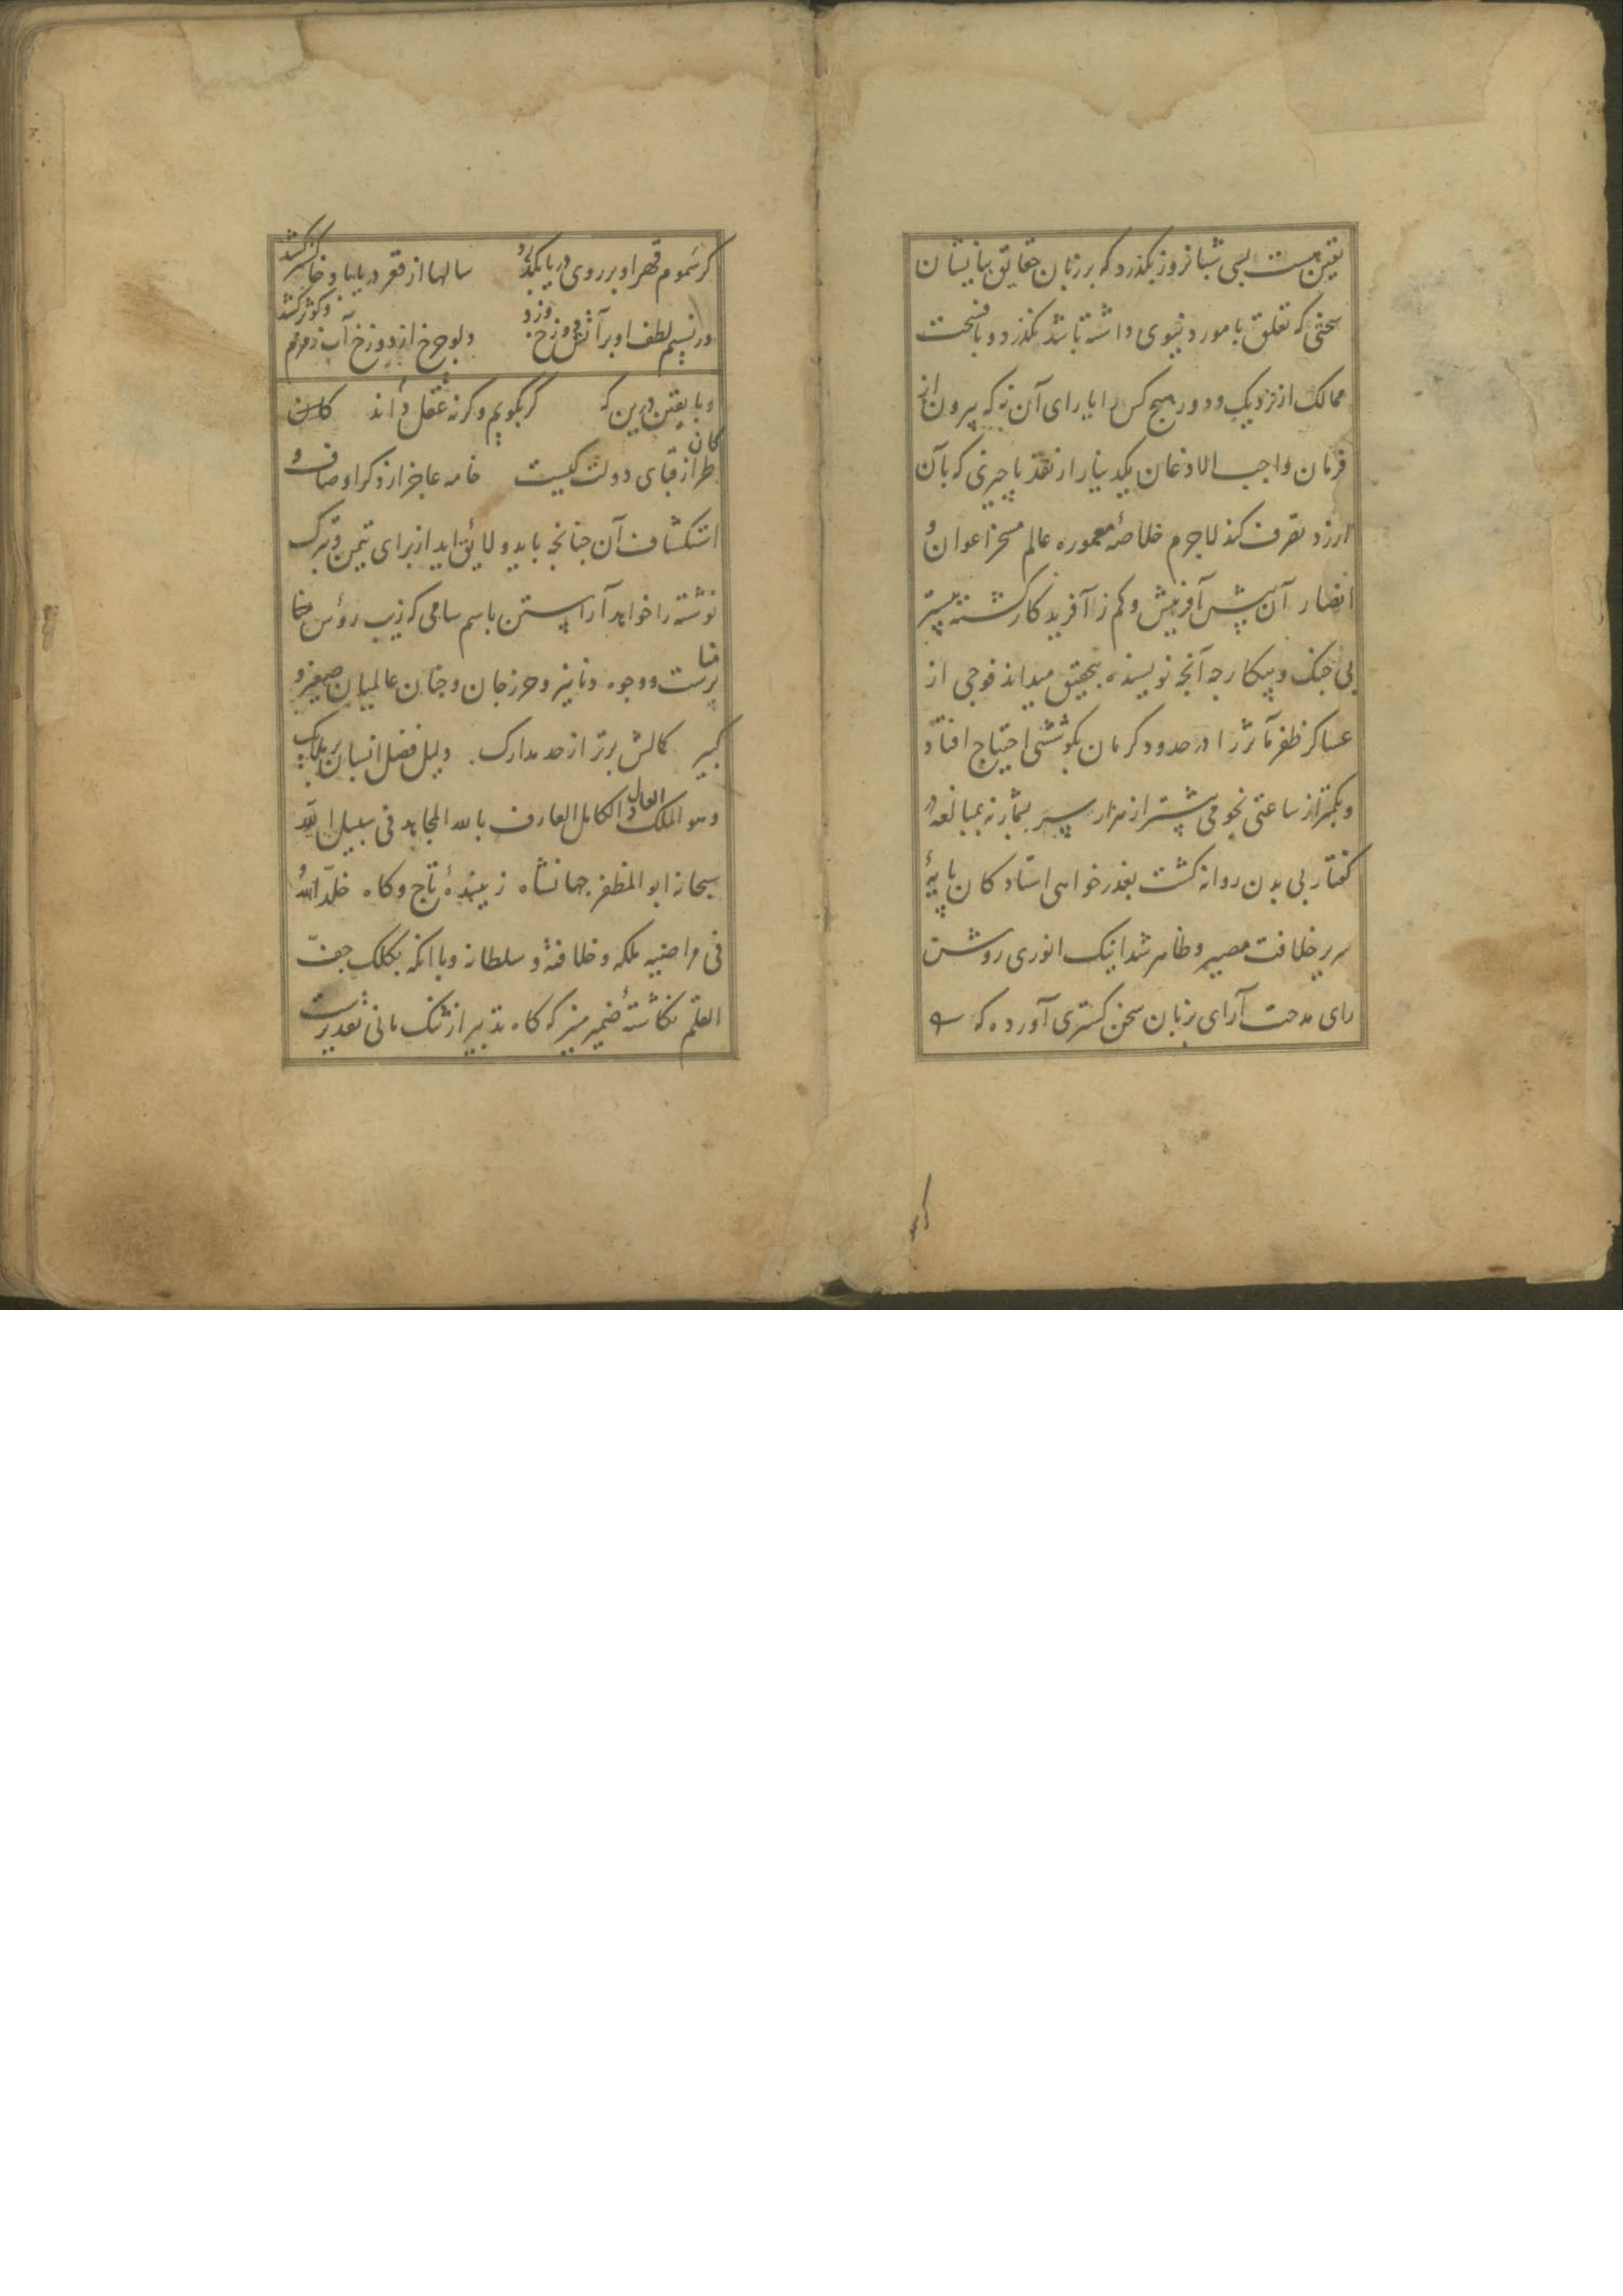 یقین هست بسی شبانروز بگذرد که بر زبان حقایق بیانیشان
سخنی که تعلق بامور دنیوی داشته باشد نگذرد و با فسحت
ممالک از نزدیک و دور هیچ کس را یارای آن نه که بیرون از
فرمان واجب الاذعان یکدینار از نقد یا چیزی که بآن
ارزد تصرف کند لاجرم خلاصهٔ معموره عالم مسخر اعوان و
انصار آن بیش آفرینش و کم ز آفریدکار کشته بیشتر
بی جنک و پیکار چه آنچه نویسنده بتحقیق میداند فوجی از
عساکر ظفر مآثر را در حدود کرمان بکوششی احتیاج افتاد
و بکمتر از ساعتی نجومی بیشتر از هزار سر بشمار نه بمبالغه در
کفتار بی بدن روانه کشت بعذر خواهی استاد کان پایهٔ
سریر خلافت مصیر و ظاهر شد اینک انوری روشن
رای مدحت آرای بزبان سخن کستری آورده که
کر سموم قهر او بر روی دریا بکذرد سالها از قعر دریا باد خاکستر کشد
ور نسیم لطف او بر آتش دوزخ وزد دلو چرخ از دوزخ آب زمزم و کوثر کشد
و با یقین درین که کر بکویم وکرنه عقل داند کان
طراز قبای دولت کیست خامه عاجز از ذکر اوصاف و
استکشاف آن چنانچه باید و لایق اید از برای تیمن و تبرک
نوشته را خواهد آراستن باسم سامی که زیب رؤس منابر
ست و وجوه دنانیر و حرز جان و جنان عالمیان صغیر و
کبیر کمالش برتر از حد مدارک. دلیل فضل انسان بر ملایک
وهو الملک العادل الکامل العارف بالله المجاهد فی سبیل الله
سبحانه ابو المظفر جهانشاه زیبندهٔ تاج و کاه خلّد الله
فی مراضیه ملکه و خلافته و سلطانه و با انکه بکلک جفّ
القلم نکاشتهٔ ضمیر منیر که کاه تدبیر ارژنک مانی تقدیرست